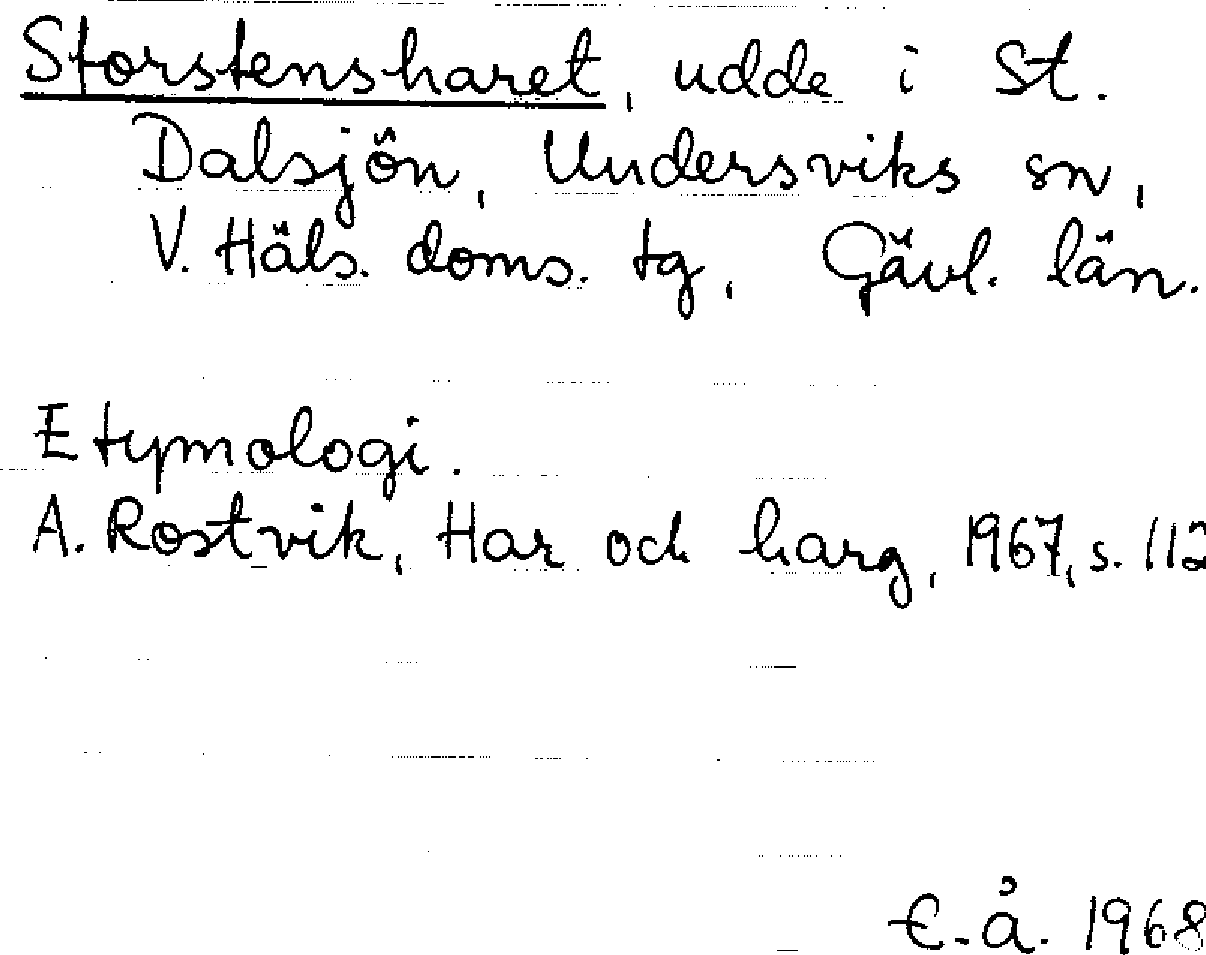 Storstensharet, udde i St.
Dalsjön, Undersviks sn,
V. Häls. doms. tg, Gävl. län.
Etymologi.
A. Rostvik, Har och harg, 1967, s. 112
E.Å. 1968